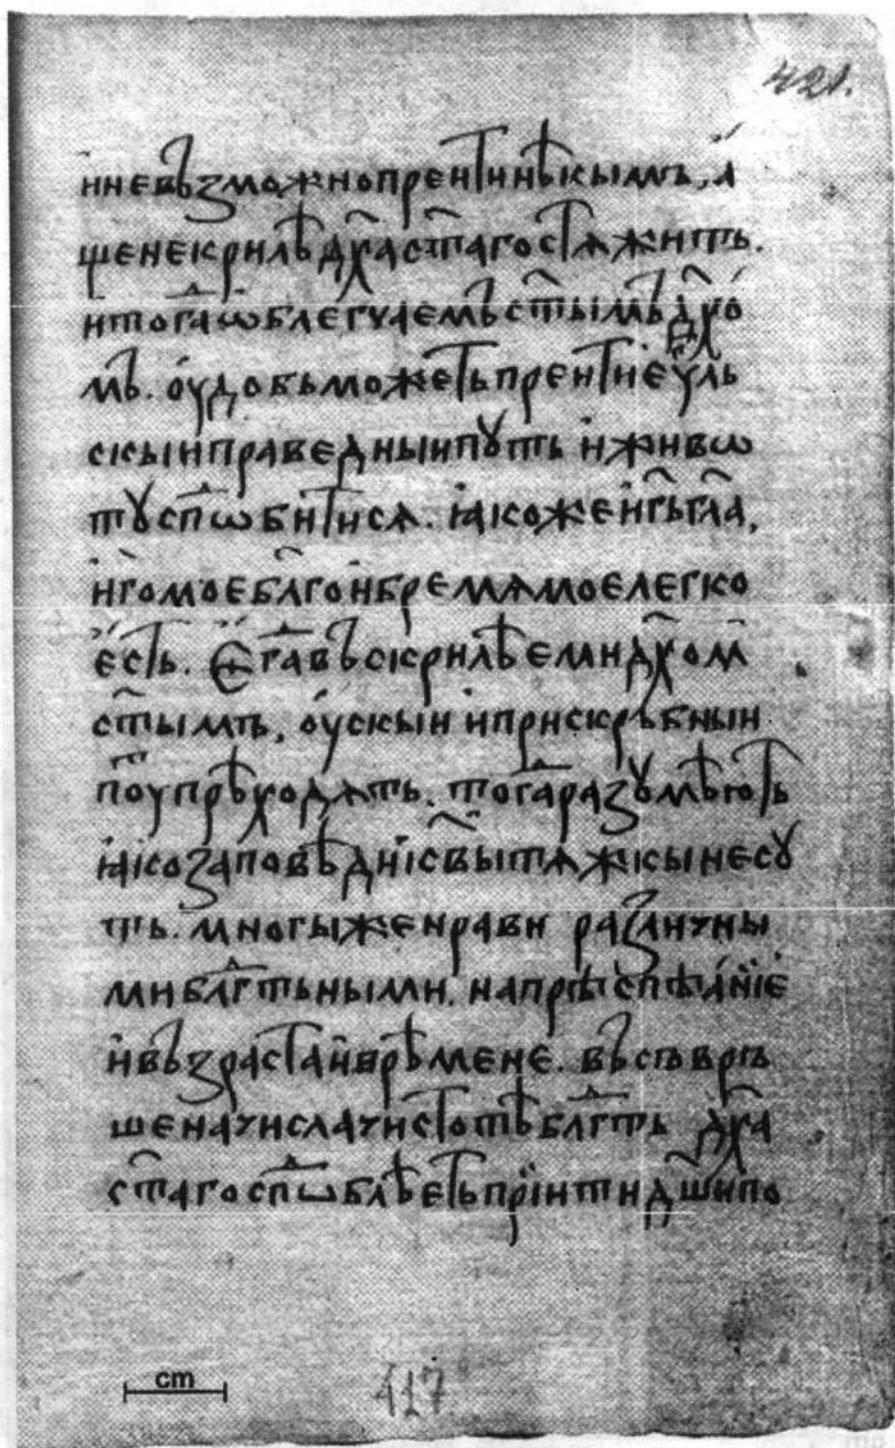 421.
и҆ невъзможно преити нѣкымъ, а҆
ще не крилѣ дх҃а ст҃аго стѧжить.
и҆ тогⷣа ѡблегчаемъ ст҃ымъ дх҃о
мъ. оу҆добь можеть преити еу҆ль
скыи праведныи пꙋть и҆ живѡ
тꙋ спⷣѡбитисѧ. ꙗкоже и҆ гь҃ гл҃а,
и҆го мое бл҃го и бремѧ мое легко
е҆сть. Егⷣа въскрилѣеми дх҃ом
ст҃ымъ, оу҆скыи и҆ прискръбныи
поуⷮ прѣходѧть. тогⷣа разꙋмѣють
ꙗко заповѣди і҆с҃вы тѧжкы не сꙋ
ть. многыже нрави различны
ми блгⷣтьными. на прѣспѣа҆нїе
и҆ възраста и҆ врѣмене. въ съвръ
шена числа чистотѣ блгⷣть дх҃а
ст҃аго спⷣѡблѣеть прїити дш҃и по
cm
417